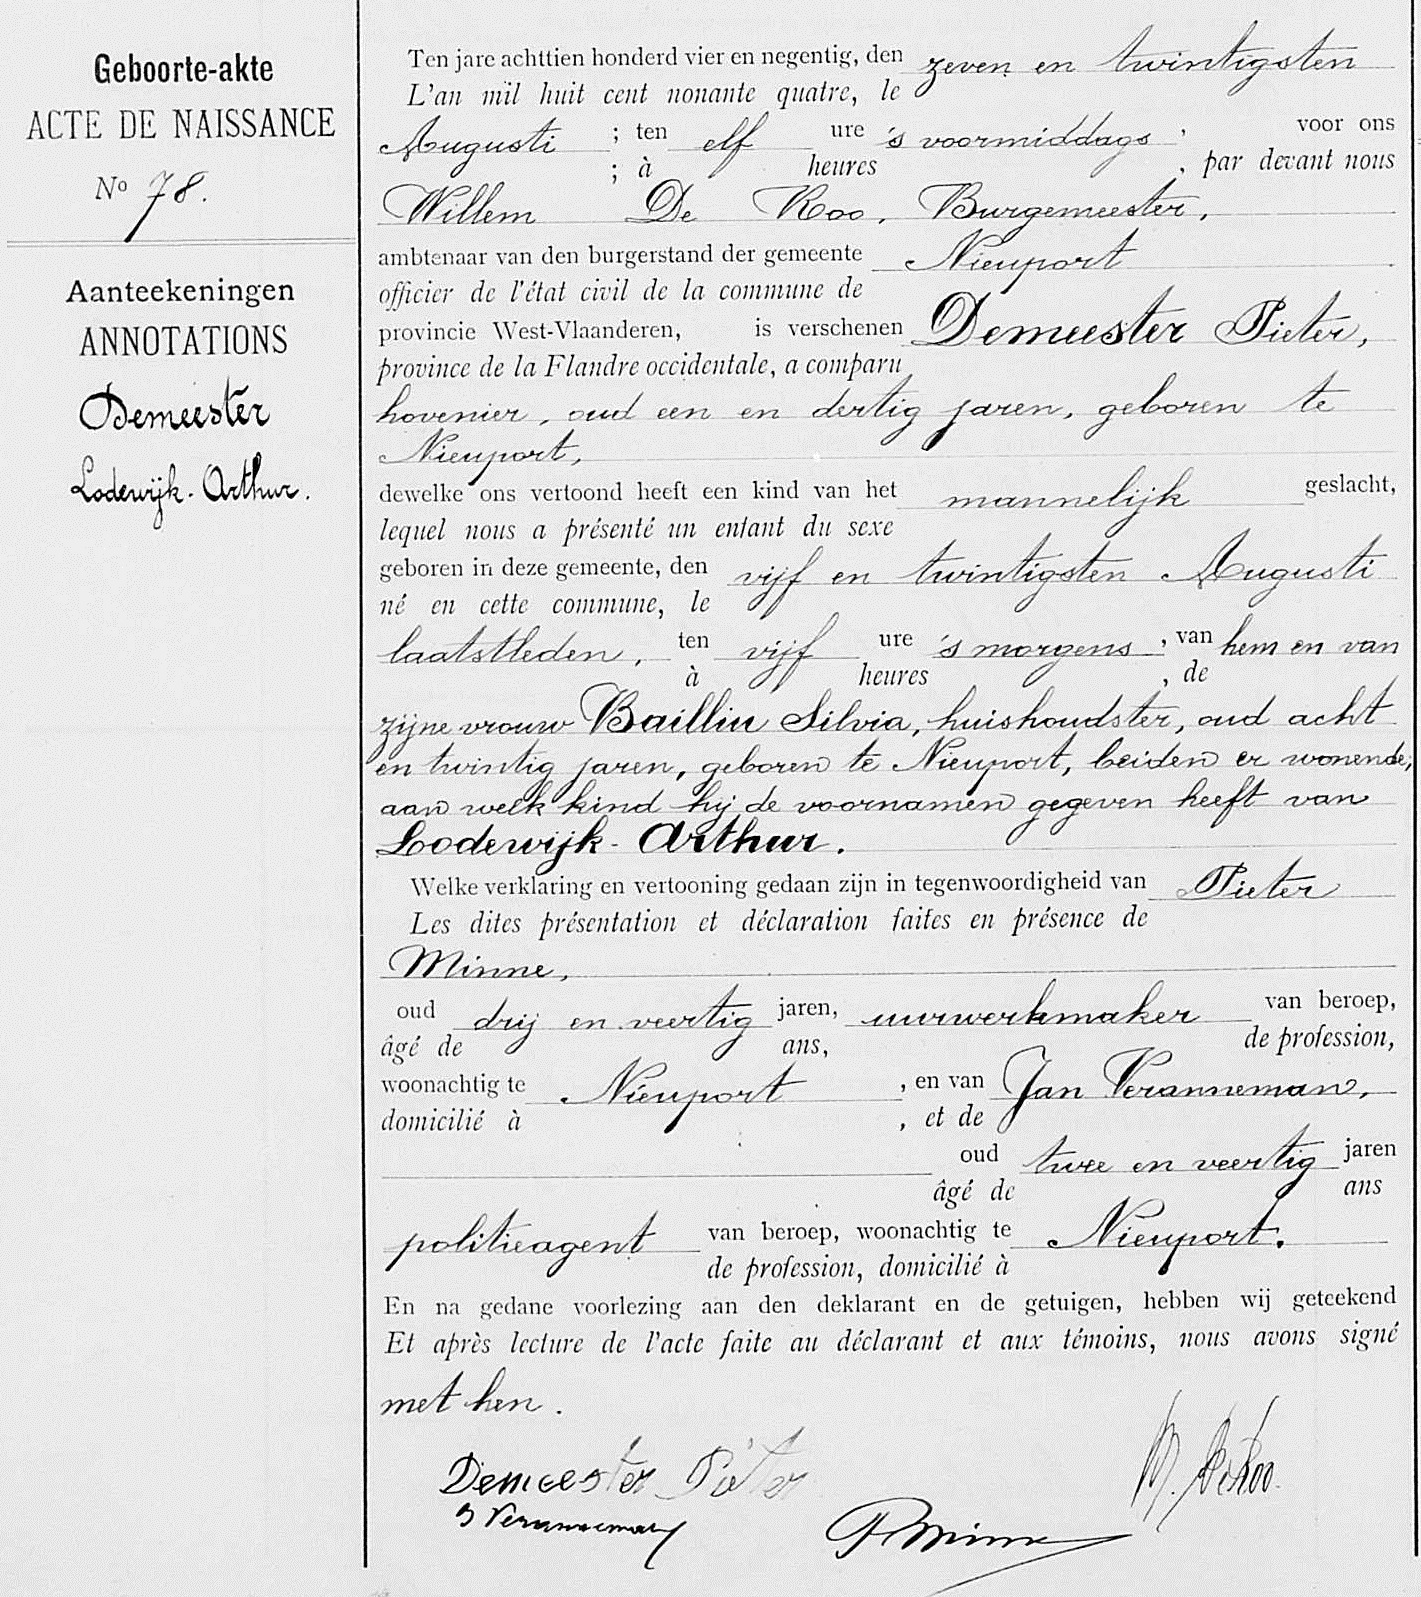 Geboorte-akte
ACTE DE NAISSANCE
No 78.
Aanteekeningen
ANNOTATIONS
Demeester
Lodewijk-Arthur.
Ten jare achttien honderd vier en negentig, den zeven en twintigsten
L'an mil huit cent nonante quatre, le
Augusti ; ten elf ure 's voormiddags, voor ons
; à heures , par devant nous
Willem De Roo, Burgemeester,
ambtenaar van den burgerstand der gemeente Nieuport
officier de l'état civil de la commune de
provincie West-Vlaanderen, is verschenen Demeester Pieter,
province de la Flandre occidentale, a comparu
hovenier, oud een en dertig jaren, geboren te
Nieuport,
dewelke ons vertoond heeft een kind van het mannelijk geslacht,
lequel nous a présenté un enfant du sexe
geboren in deze gemeente, den vijf en twintigsten Augusti
né en cette commune, le
laatstleden, ten vijf ure 's morgens, van hem en van
à heures , de
zijne vrouw Bailliu Silvia, huishoudster, oud acht
en twintig jaren, geboren te Nieuport, beiden er wonende,
aan welk kind hij de voornamen gegeven heeft van
Lodewijk-Arthur.
Welke verklaring en vertooning gedaan zijn in tegenwoordigheid van Pieter
Les dites présentation et déclaration faites en présence de
Minne,
oud drij en veertig jaren, uurwerkmaker van beroep,
âgé de ans, de profession,
woonachtig te Nieuport, en van Jan Veranneman,
domicilié à , et de
oud twee en veertig jaren
âgé de ans
politieagent van beroep, woonachtig te Nieuport.
de profession, domicilié à
En na gedane voorlezing aan den deklarant en de getuigen, hebben wij geteekend
Et après lecture de l'acte faite au déclarant et aux témoins, nous avons signé
met hen.
Demeester Pieter W. De Roo
J Veranneman P Minne